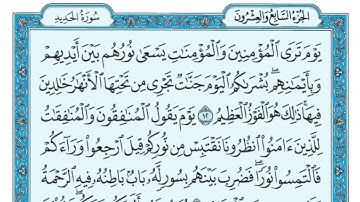 الجزء السابع والعشرون سورة الحديد
يَوْمَ تَرَى ٱلْمُؤْمِنِينَ وَٱلْمُؤْمِنَٰتِ يَسْعَىٰ نُورُهُم بَيْنَ أَيْدِيهِمْ
وَبِأَيْمَٰنِهِمۖ بُشْرَىٰكُمُ ٱلْيَوْمَ جَنَّٰتٌ تَجْرِى مِن تَحْتِهَا ٱلْأَنْهَٰرُ خَٰلِدِينَ
فِيهَاۚ ذَٰلِكَ هُوَ ٱلْفَوْزُ ٱلْعَظِيمُ ١٢ يَوْمَ يَقُولُ ٱلْمُنَٰفِقُونَ وَٱلْمُنَٰفِقَٰتُ
لِلَّذِينَ ءَامَنُوا۟ ٱنظُرُونَا نَقْتَبِسْ مِن نُّورِكُمْ قِيلَ ٱرْجِعُوا۟ وَرَآءَكُمْ
فَٱلْتَمِسُوا۟ نُورًاۖ فَضُرِبَ بَيْنَهُم بِسُورٍ لَّهُۥ بَابٌۢ بَاطِنُهُۥ فِيهِ ٱلرَّحْمَةُ